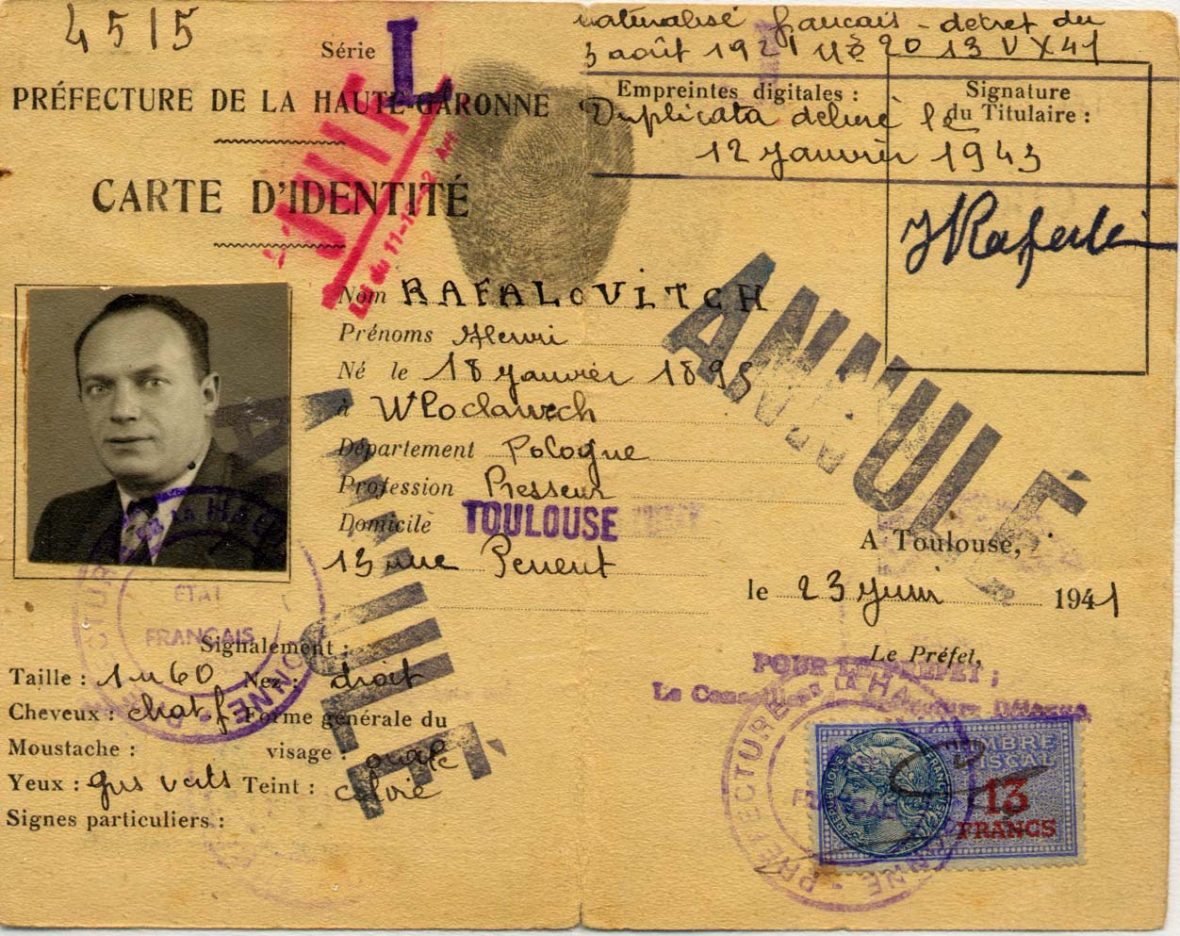 4515
Série L
PRÉFECTURE DE LA HAUTE-GARONNE
CARTE D'IDENTITÉ
JUIF
Loi du 11-12-42 Art
naturalisé français - décret du
août 192
Empreintes digitales :
Duplicata délivré le
12 Janvier 1943
Signature
du Titulaire :
Nom RAFALOVITCH
Prénoms Henri
Né le 18 Janvier 1895
à Wloclawech
Département Pologne
Profession Presseur
Domicile TOULOUSE
13 rue Penent
ANNULÉ
ANNULÉ
A Toulouse,
le 23 Juin 1941
Le Préfet,
POUR LE PREFET ;
Le Conseiller de Préfecture Délégué
Signalement :
Taille : 1m60 Nez : droit
Cheveux : chat f Forme générale du
Moustache : visage : ovale
Yeux : gris verts Teint : coloré
Signes particuliers :
PREFECTURE LA HAUTE GARONNE
ETAT
FRANÇAIS
PREFECTURE LA HAUTE GARONNE
TIMBRE
FISCAL
13
FRANCS